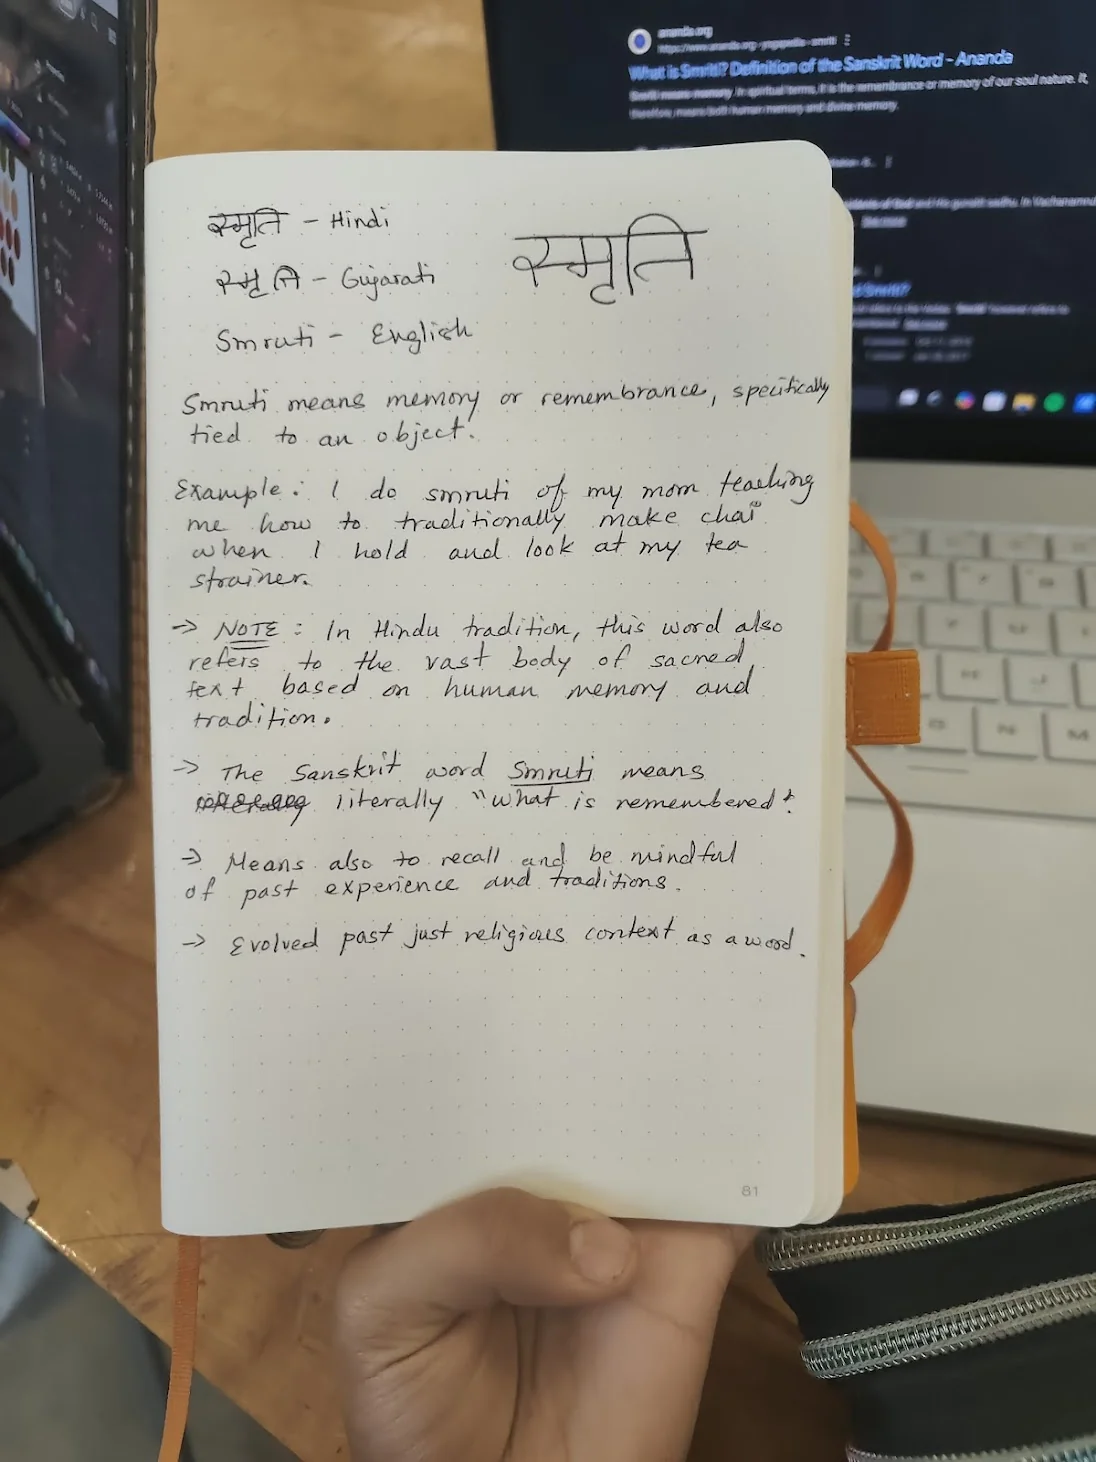 स्मृति - Hindi
स्मृति
સ્મૃતિ - Gujarati
Smruti - English
Smruti means memory or remembrance, specifically
tied to an object.
Example: I do smruti of my mom teaching
me how to traditionally make chai
when I hold and look at my tea
strainer.
→ NOTE: In Hindu tradition, this word also
refers to the vast body of sacred
text based on human memory and
tradition.
→ The Sanskrit word Smruti means
literally "what is remembered".
→ Means also to recall and be mindful
of past experience and traditions.
→ Evolved past just religious context as a word.
81
ananda.org
https://www.ananda.org › yogapedia › smriti
What is Smriti? Definition of the Sanskrit Word - Ananda
Smriti means memory. In spiritual terms, it is the remembrance or memory of our soul nature. It,
therefore, means both human memory and divine memory.